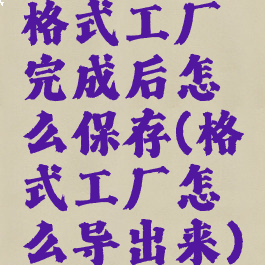 格式工厂
完成后怎
么保存(格
式工厂怎
么导出来)